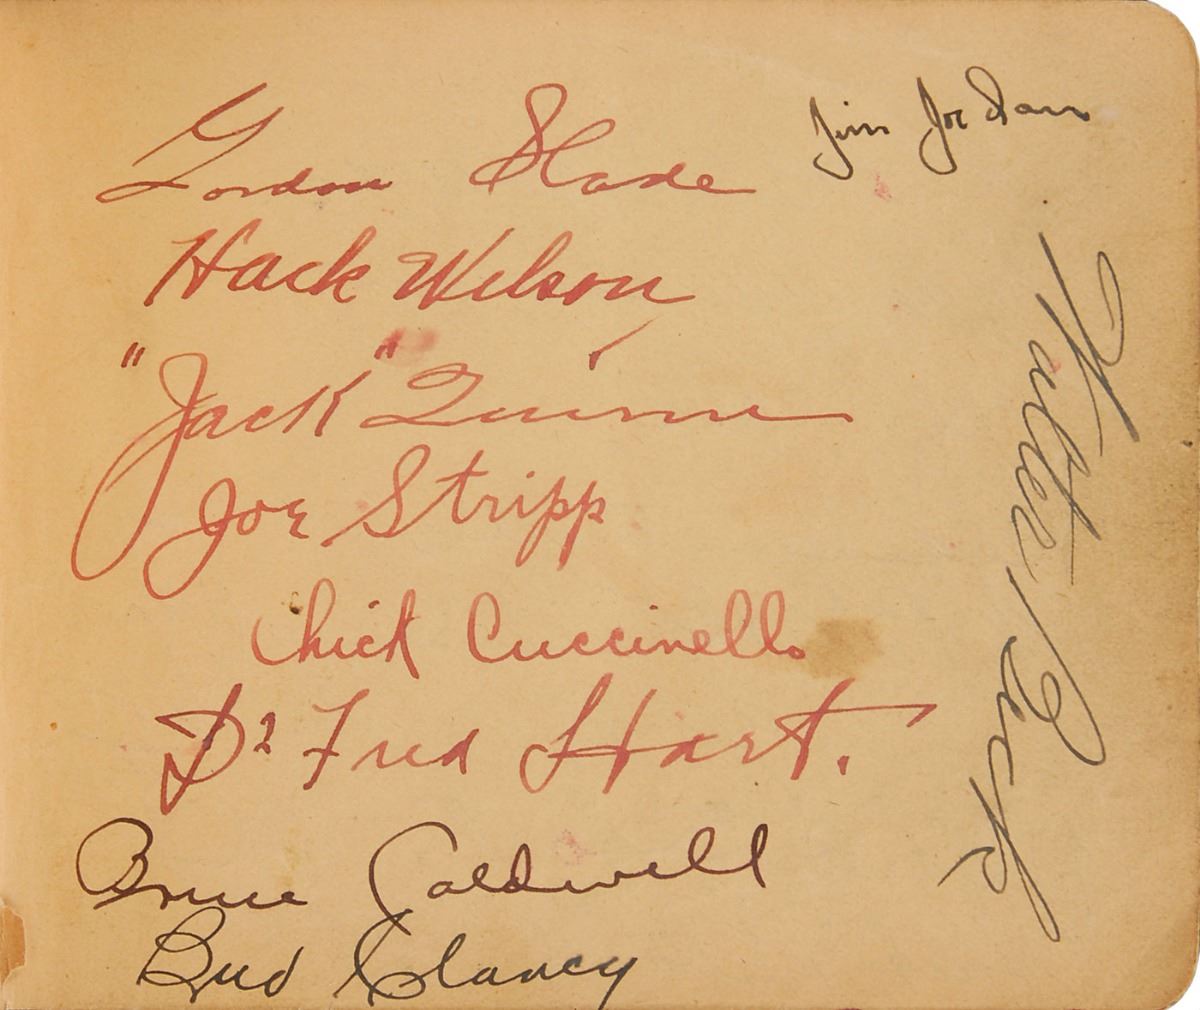 Gordon Slade
Jim Jordan
Hack Wilson
"Jack" Quinn
Joe Stripp
Chick Cuccinello
Dr Fred Hart.
Bruce Caldwell
Bud Clancy
Walter Beck